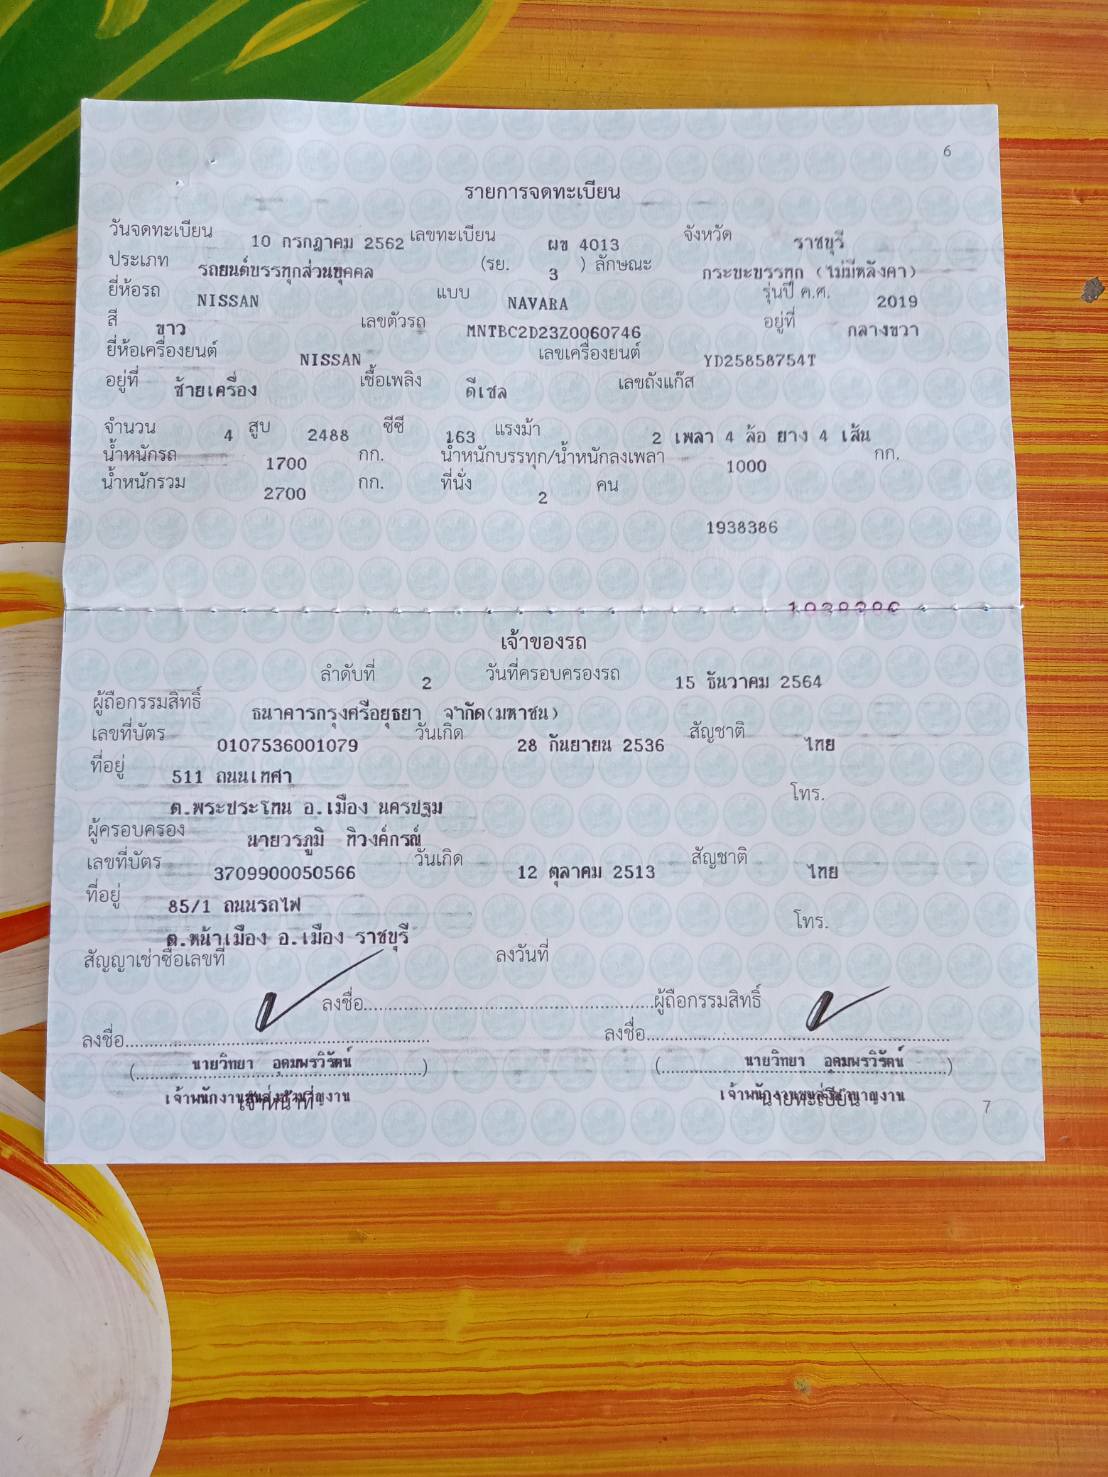 6
รายการจดทะเบียน
วันจดทะเบียน 10 กรกฎาคม 2562 เลขทะเบียน ผข 4013 จังหวัด ราชบุรี
ประเภท รถยนต์บรรทุกส่วนบุคคล (รย. 3 ) ลักษณะ กระบะบรรทุก (ไม่มีหลังคา)
ยี่ห้อรถ NISSAN แบบ NAVARA รุ่นปี ค.ศ. 2019
สี ขาว เลขตัวรถ MNTBC2D23Z0060746 อยู่ที่ กลางขวา
ยี่ห้อเครื่องยนต์ NISSAN เลขเครื่องยนต์ YD25858754T
อยู่ที่ ซ้ายเครื่อง เชื้อเพลิง ดีเซล เลขถังแก๊ส
จำนวน 4 สูบ 2488 ซีซี 163 แรงม้า 2 เพลา 4 ล้อ ยาง 4 เส้น
น้ำหนักรถ 1700 กก. น้ำหนักบรรทุก/น้ำหนักลงเพลา 1000 กก.
น้ำหนักรวม 2700 กก. ที่นั่ง 2 คน
1938386
เจ้าของรถ
ลำดับที่ 2 วันที่ครอบครองรถ 15 ธันวาคม 2564
ผู้ถือกรรมสิทธิ์ ธนาคารกรุงศรีอยุธยา จำกัด(มหาชน)
เลขที่บัตร 0107536001079 วันเกิด 28 กันยายน 2536 สัญชาติ ไทย
ที่อยู่ 511 ถนนเทศา
ต.พระประโทน อ.เมือง นครปฐม โทร.
ผู้ครอบครอง นายวรภูมิ ทิวงค์กรณ์
เลขที่บัตร 3709900050566 วันเกิด 12 ตุลาคม 2513 สัญชาติ ไทย
ที่อยู่ 85/1 ถนนรถไฟ
ต.หน้าเมือง อ.เมือง ราชบุรี โทร.
สัญญาเช่าซื้อเลขที่ ลงวันที่
ลงชื่อ........ผู้ถือกรรมสิทธิ์
ลงชื่อ........ ลงชื่อ........
(นายวิทยา อุดมพรวิรัตน์) (นายวิทยา อุดมพรวิรัตน์)
เจ้าพนักงานขนส่งชำนาญงาน เจ้าพนักงานขนส่งชำนาญงาน
เจ้าหน้าที่ นายทะเบียน
7